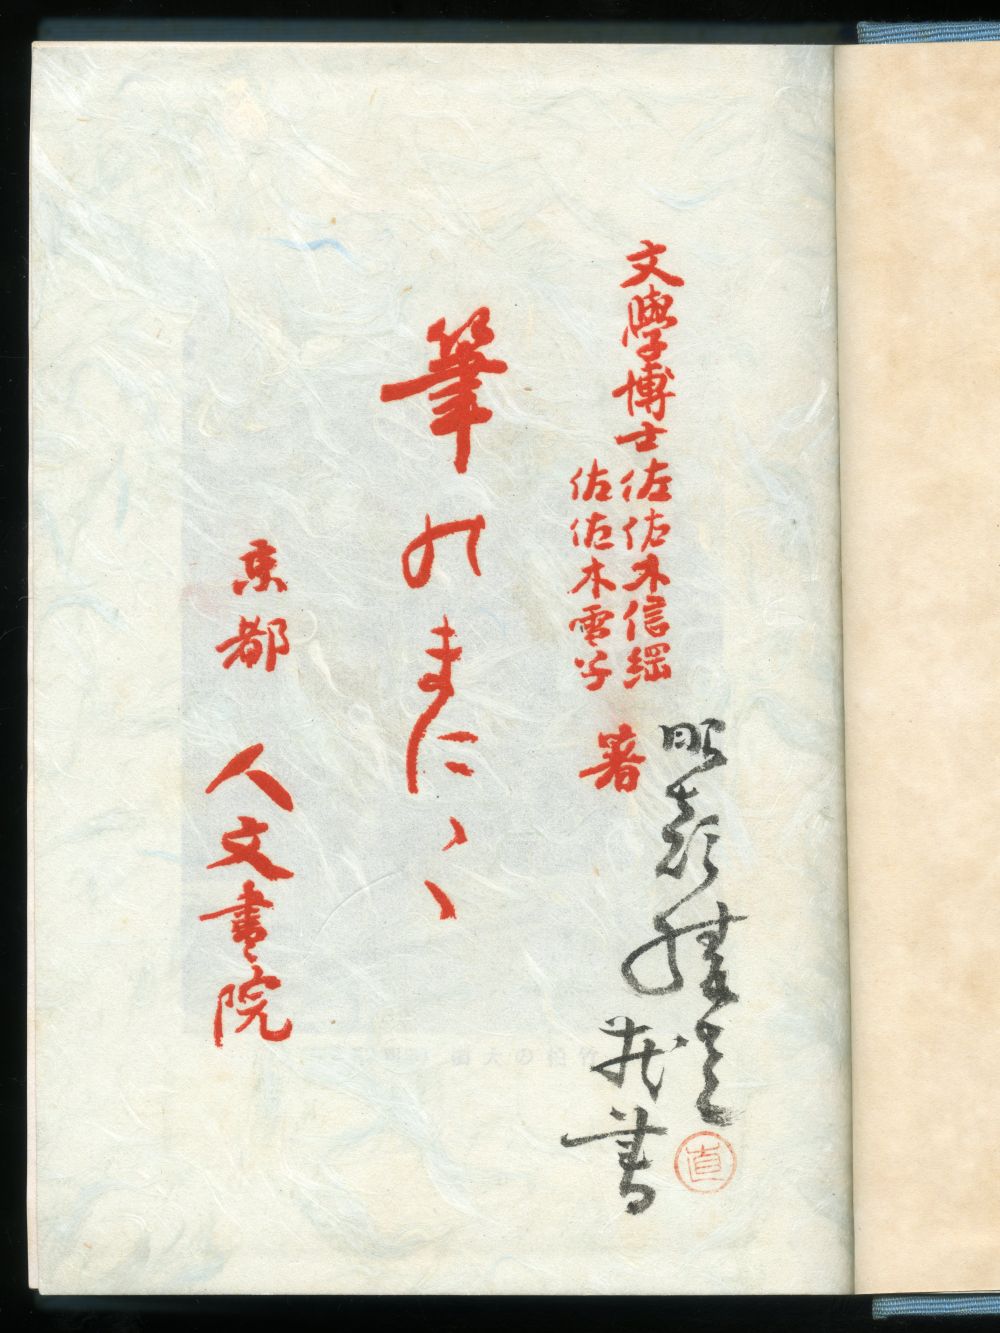 文學博士佐佐木信綱
佐佐木雪子
著
筆のまにゝゝ
京都 人文書院
藏書
直